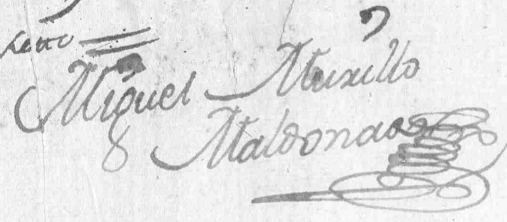 Miguel Murillo
Maldonado